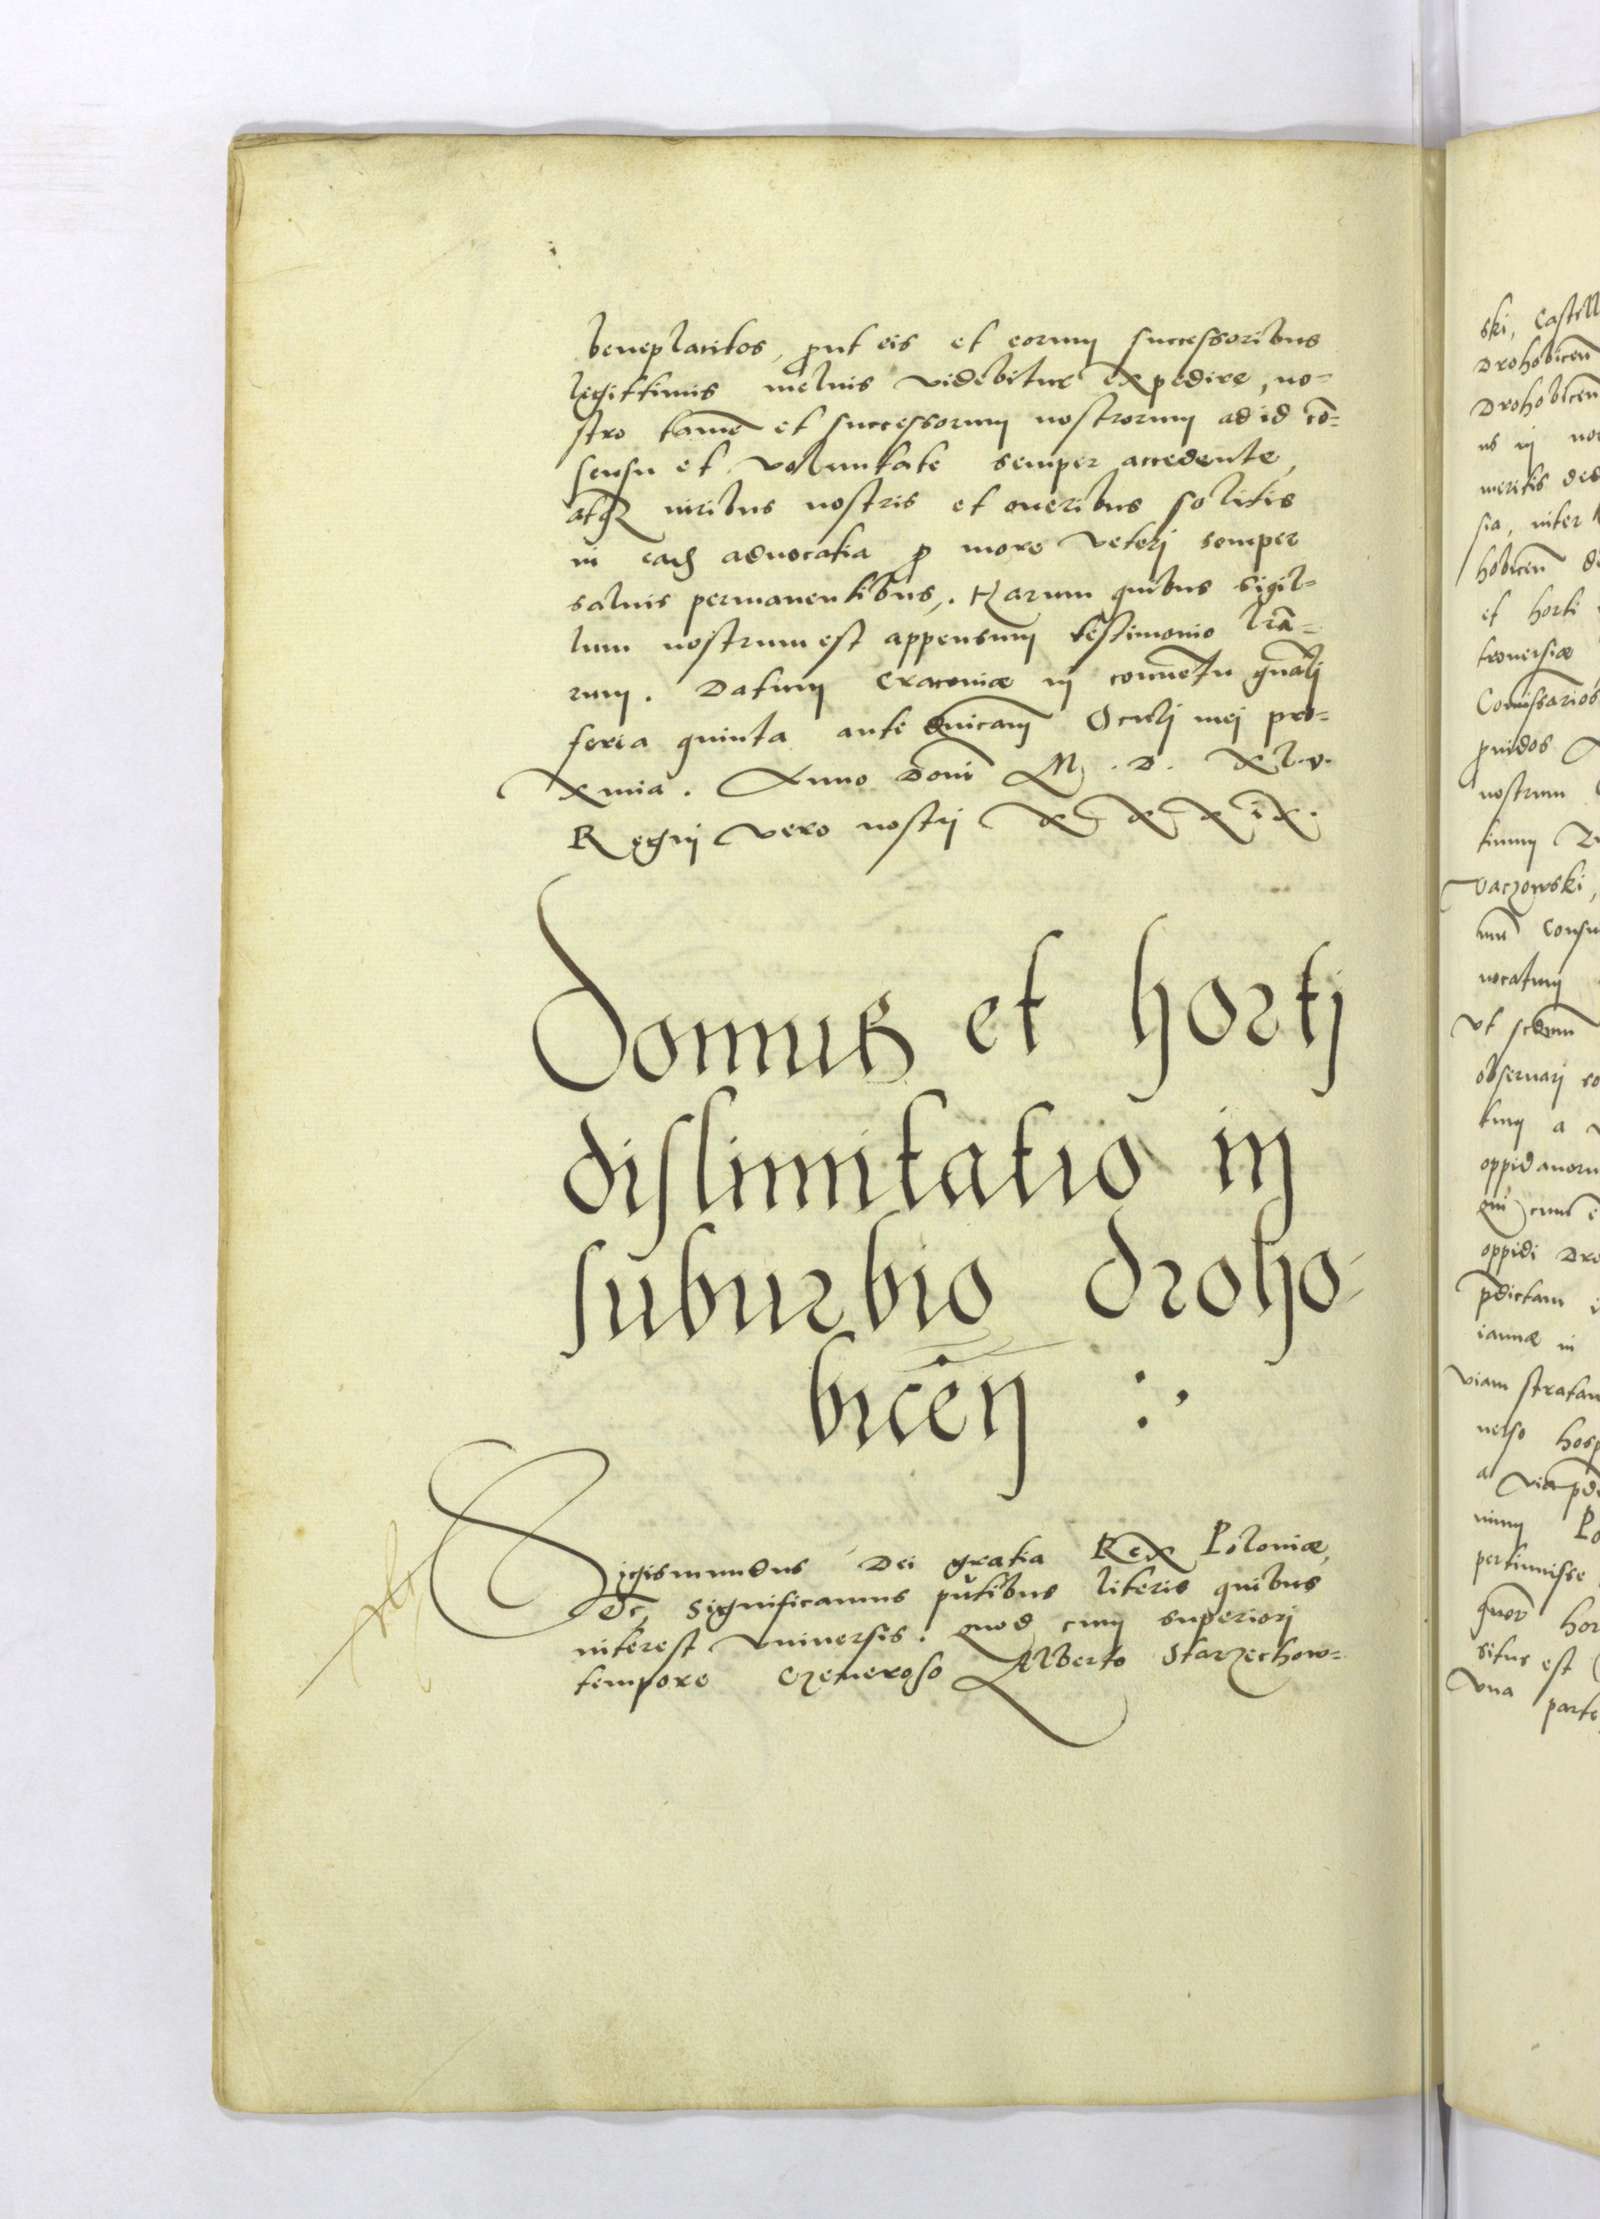 beneplacitos, ꝓut eis et eorum successoribus
legittimis melius videbitur expedire, no-
stro tamē et successorum nostrorum ad id cō-
sensu et voluntate semper accedente,
atqꝫ iuribus nostris et oneribus solitis
in eadē aduocatia ꝓ more veterj semper
saluis permanentibus. Harum quibus sigil-
lum nostrum est appensum testimonio lrā-
rum. Datum Cracoviæ in conuētu gnālj
feria quinta ante dnicam Oculj mej pro-
xima. Anno Domi M. D. XLV.
Regnj vero nostrj XXXIX.
Domus et hortj
dislimitatio in
suburbio droho-
bicēn
Sigismundus Dei gratia Rex Poloniæ,
etc, Significamus pñtibus literis quibus
interest vniuersis. Quod cum superiorj
tempore Generoso Alberto Starzechow-
ski, Castell
Drohobicen
Drohobicen
meritis
sia, inter
hobicen
et horti
trouersiæ
Comissarios
ꝓuidos
nostrum
uaczowski,
consu
uocatum
vt
obseruarj
a
oppidanoru
oppidi Dro
pdictam
ianuæ in
viam stratam
uerso hosp
a via
pertinuisse
quor hor
situs est
vna parte